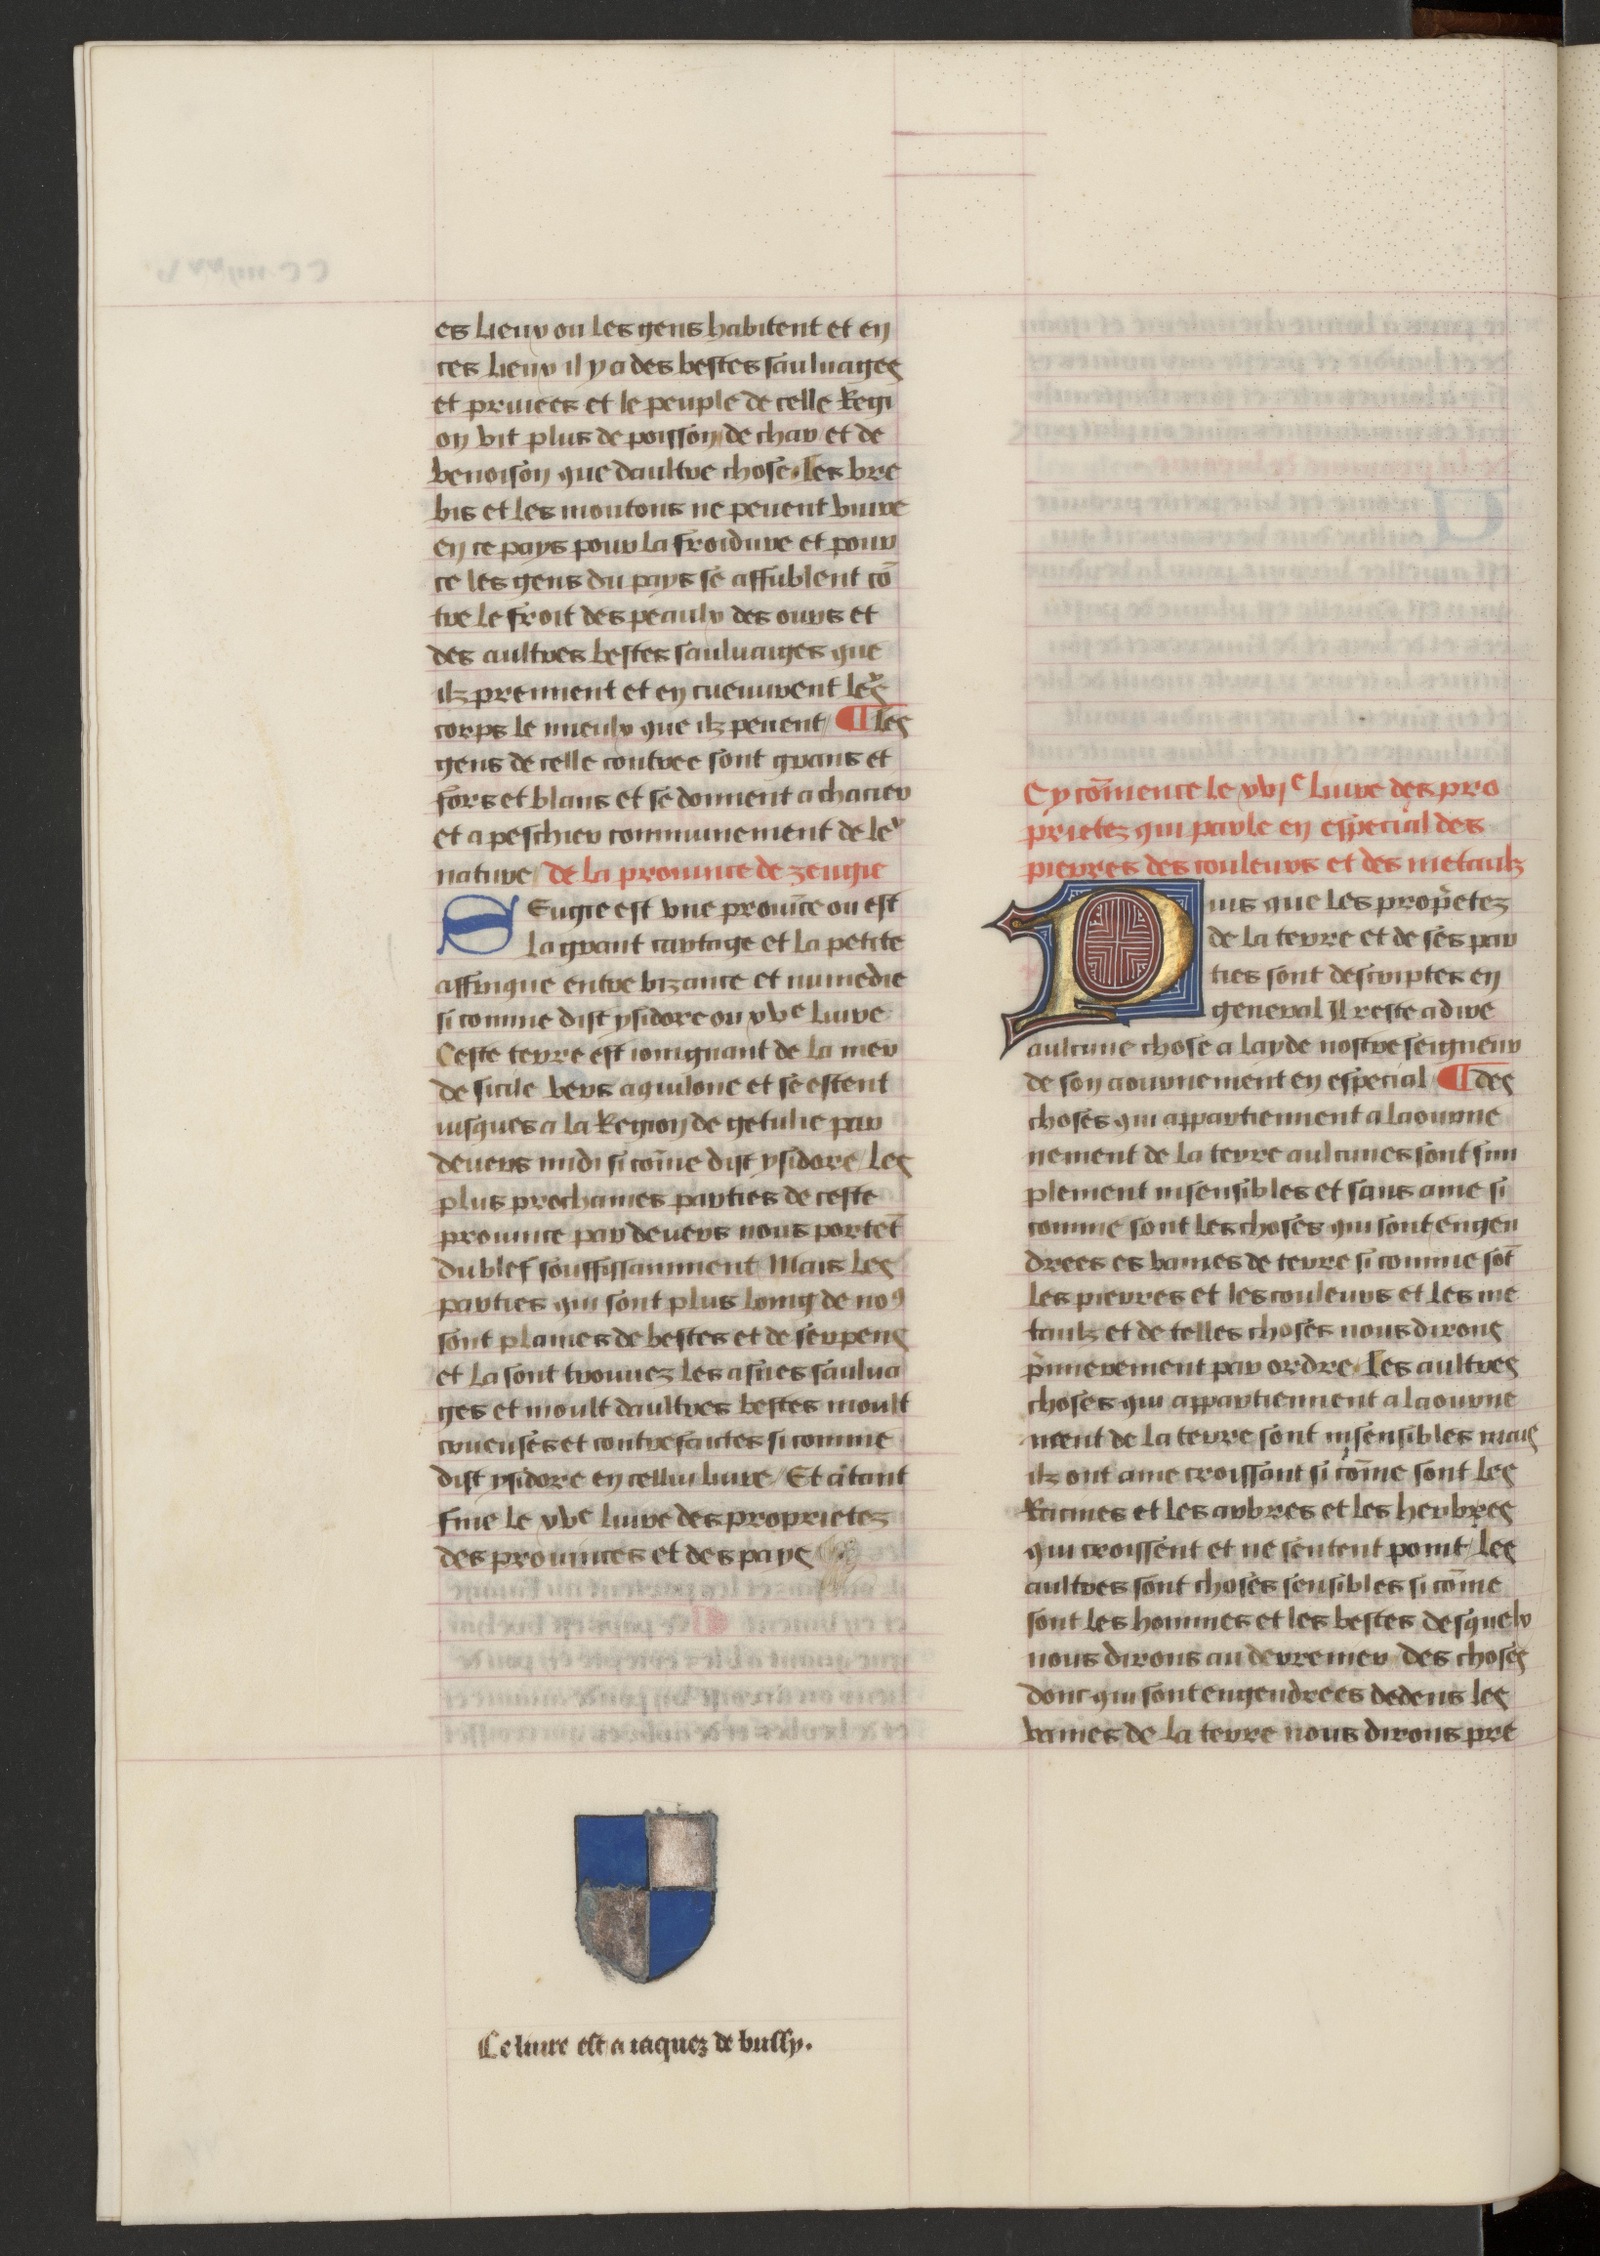 es lieux ou les gens habitent et en
ces lieux il y a des bestes sauluages
et priuees et le peuple de celle Regi
on vit plus de poisson de char et de
venoison que daultre chose. Les bre
bis et les moutons ne peuent viure
en ce pays pour la froidure et pour
ce les gens du pays se affublent cō
tre le froit des peaulx des ours et
des aultres bestes sauluaiges que
ilz prennent et en cueuurent leʳs
corps le mieulx que ilz peuent / ¶ les
gens de celle contree sont grans et
fors et blans et se donnent a chacier
et a peschier communement de leʳ
nature / de la prouince de zeugie
Seugie est vne prouīce ou est
la grant cartage et la petite
affrique entre bizance et numedie
si comme dist ysidore ou xvᵉ liure
Ceste terre est ioingnant de la mer
de sicile vers aquilone et se estent
iusques a la Region de getulie par
deuers midi si cōme dist ysidore / les
plus prochaines parties de ceste
prouince par deuers nous portēt
du blef souffissamment Mais les
parties qui sont plus loing de noꝰ
sont plaines de bestes et de serpens
et la sont trouuez les asnes saulua
ges et moult daultres bestes moult
crueuses et contrefaictes si comme
dist ysidore en cellui liure / Et a tant
fine le xvᵉ liure des proprietez
des prouinces et des pays
Cy cōmence le xvjᵉ liure des pro
prietez qui parle en especial des
pierres des couleurs et des metaulz
Puis que les prop̄etez
de la terre et de ses par
ties sont descriptes en
general Il reste a dire
aulcune chose a layde nostre seigneur
de son aournement en especial ¶ des
choses qui appartiennent a laourne
nement de la terre aulcunes sont sim
plement insensibles et sans ame si
comme sont les choses qui sont engen
drees es vaines de terre si comme sōt
les pierres et les couleurs et les me
taulz et de telles choses nous dirons
p̄mierement par ordre. Les aultres
choses qui appartiennent a laourne
ment de la terre sont insensibles mais
ilz ont ame croissant si cōme sont les
Racines et les arbres et les herbres
qui croissent et ne sentent point / les
aultres sont choses sensibles si cōme
sont les hommes et les bestes desquelx
nous dirons au derrenier / des choses
donc qui sont engendrees dedens les
vaines de la terre nous dirons pre
Ce liure est a iaquez de bussy.